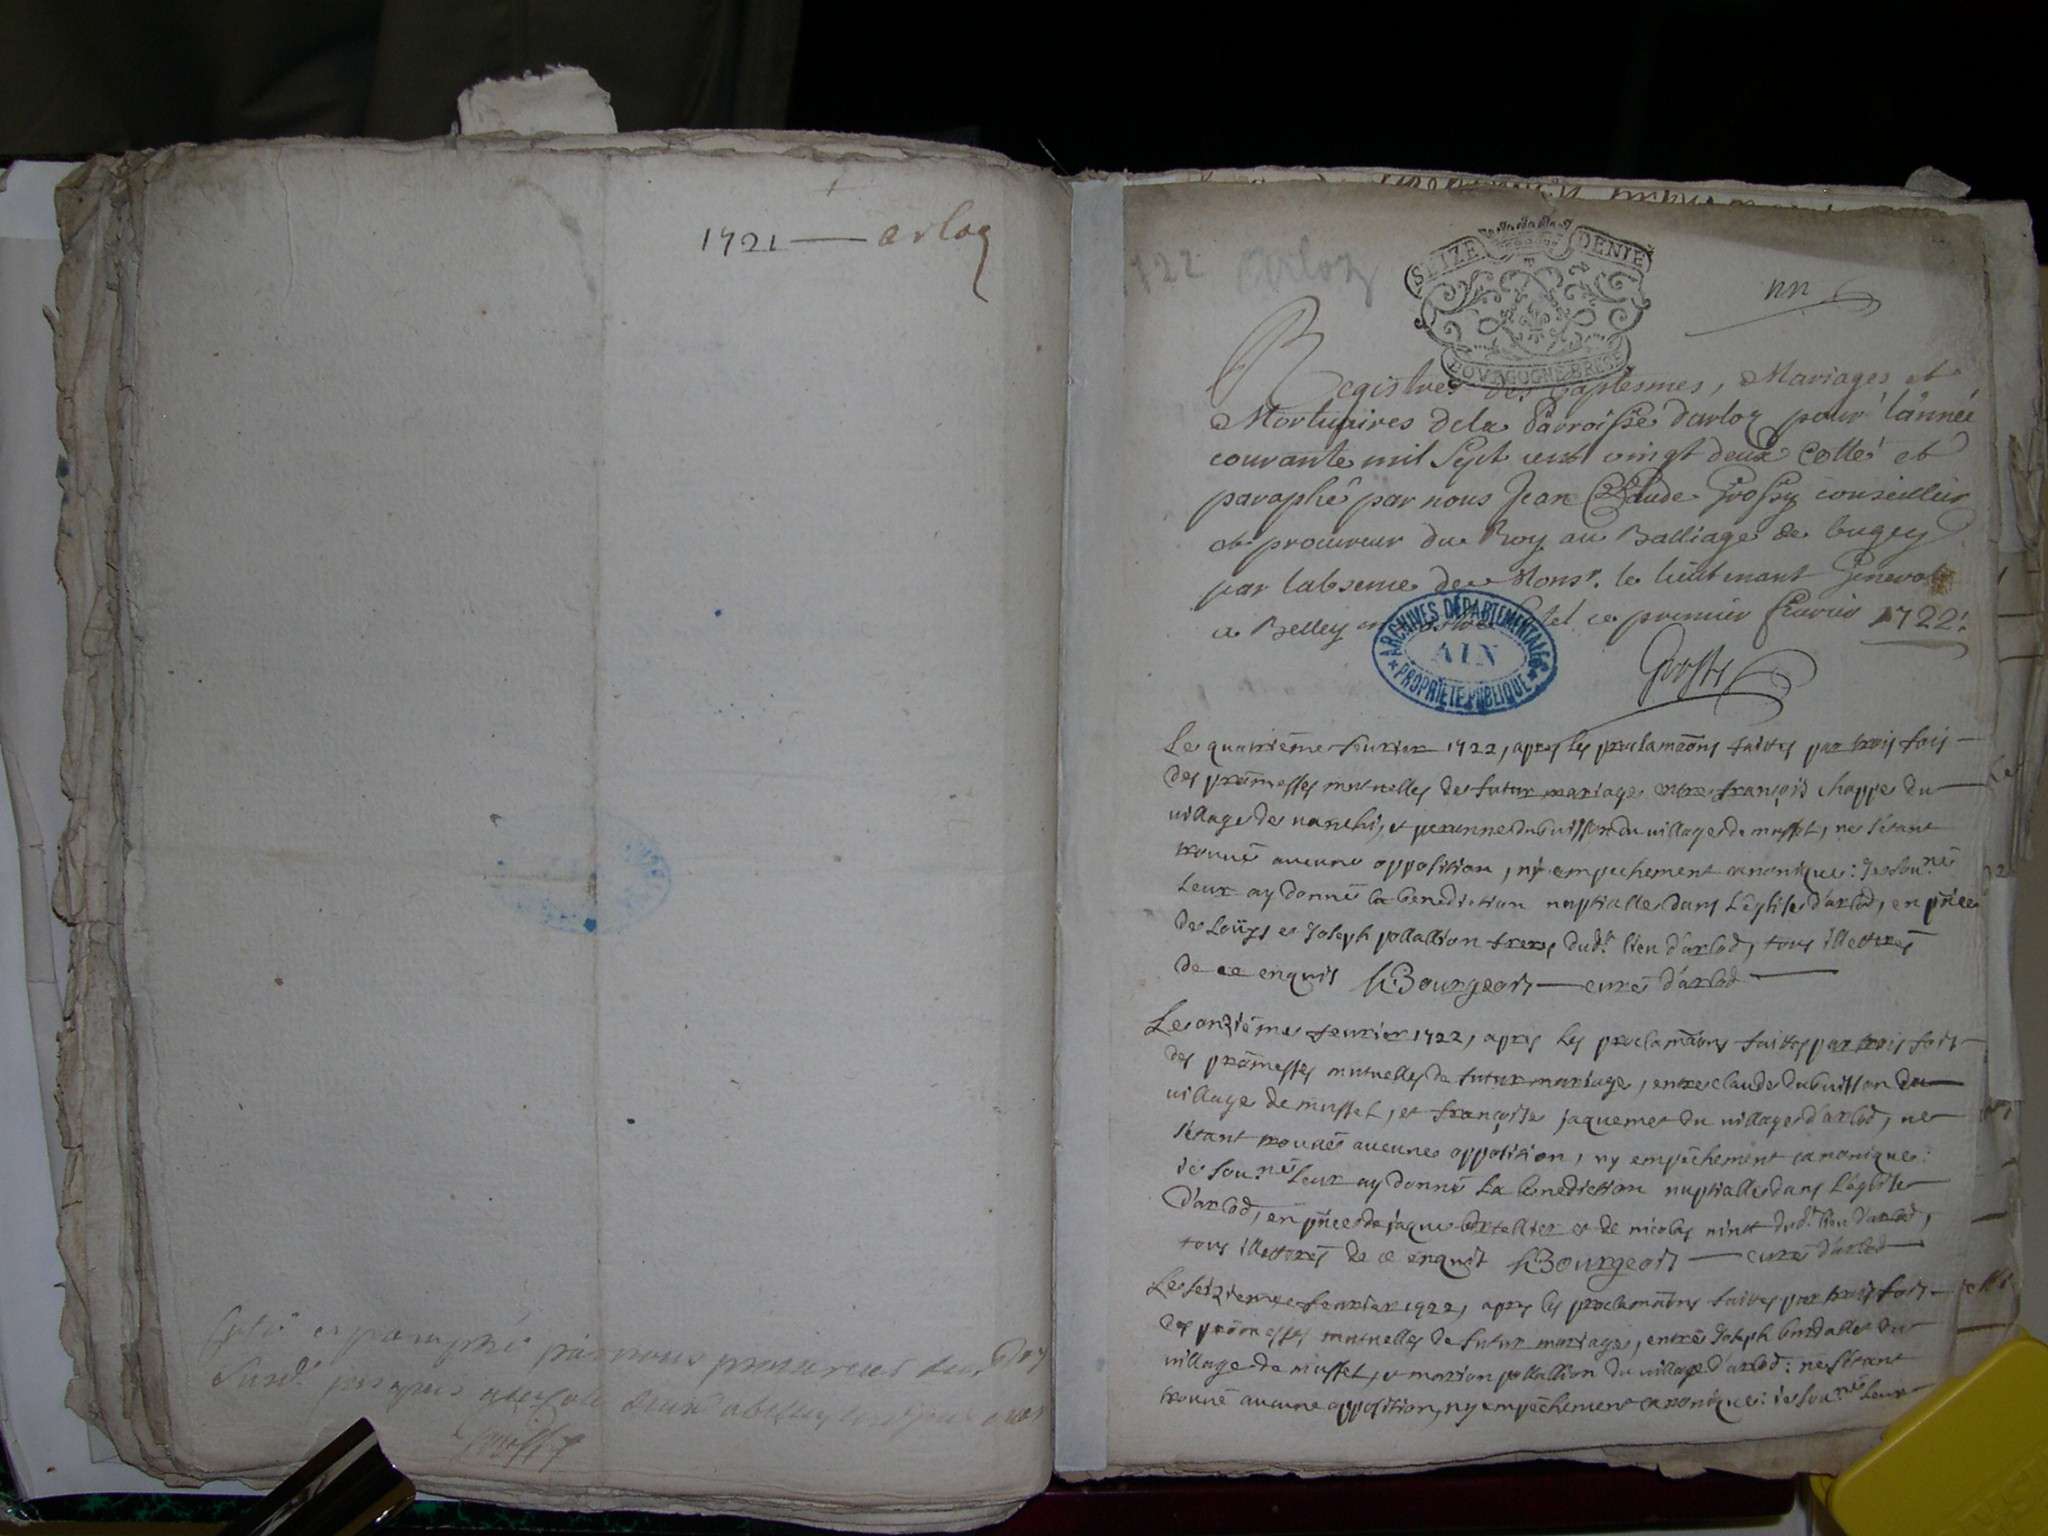 1721 — arloz
Cotté et paraphé par nous procureur du Roy
722 arloz
SEIZE DENIE
BOURGOGNE BRESSE
nn
Registres des baptesmes, Mariages et
Mortuaires de la Parroisse d'arloz pour l'année
courante mil sept cent vingt deux Cotté et
paraphé par nous Jean Claude Grossy conseiller
et procureur du Roy au Balliage de bugey
par labsence de Monsr. le lieutenant General
a Belley en hostel ce premier fevrier 1722.
ARCHIVES DÉPARTEMENTALES
AIN
PROPRIÉTÉ PUBLIQUE
Grossy
Le quatriéme feurier 1722, apres les proclamaons faittes par trois fois
des promesses mutuelles de futur mariage entre françois chappe du
village de vanchi, et peronne dubuisson du village de mussel, ne s'etant
trouué aucune opposition, ny empechement canonique: Je sou.né
Leur ay donné la benediction nuptialle dans L'eglise d'arlod, en pñce
de Loüys et Joseph pollallion freres dud.t lieu d'arlod, tous illettrés
de ce enquis Bourgeois — curé d'arlod
Le onziéme feurier 1722, apres les proclamaons faittes par trois fois
des promesses mutuelles de futur mariage, entre claude dubuisson du
village de mussel, et françoise jaquemet du village d'arlod, ne
s'etant trouués aucune opposition, ny empéchement canonique:
ie sou.né Leur ay donné La benediction nuptialle dans L'églisse
d'arlod, en pñce de jaque et de nicolas ninet dud.t lieu d'arlod,
tous illettrés de ce enquis Bourgeois — curé d'arlod
Le seizieme feurier 1722, apres les proclamaons faittes par trois fois
des promesses mutuelles de futur mariage, entre Joseph burdallet du
village de mussel, et marion pollallion du village d'arlod: ne s'étant
trouué aucune opposition, ny empéchement canonique: ie sou.né Leur